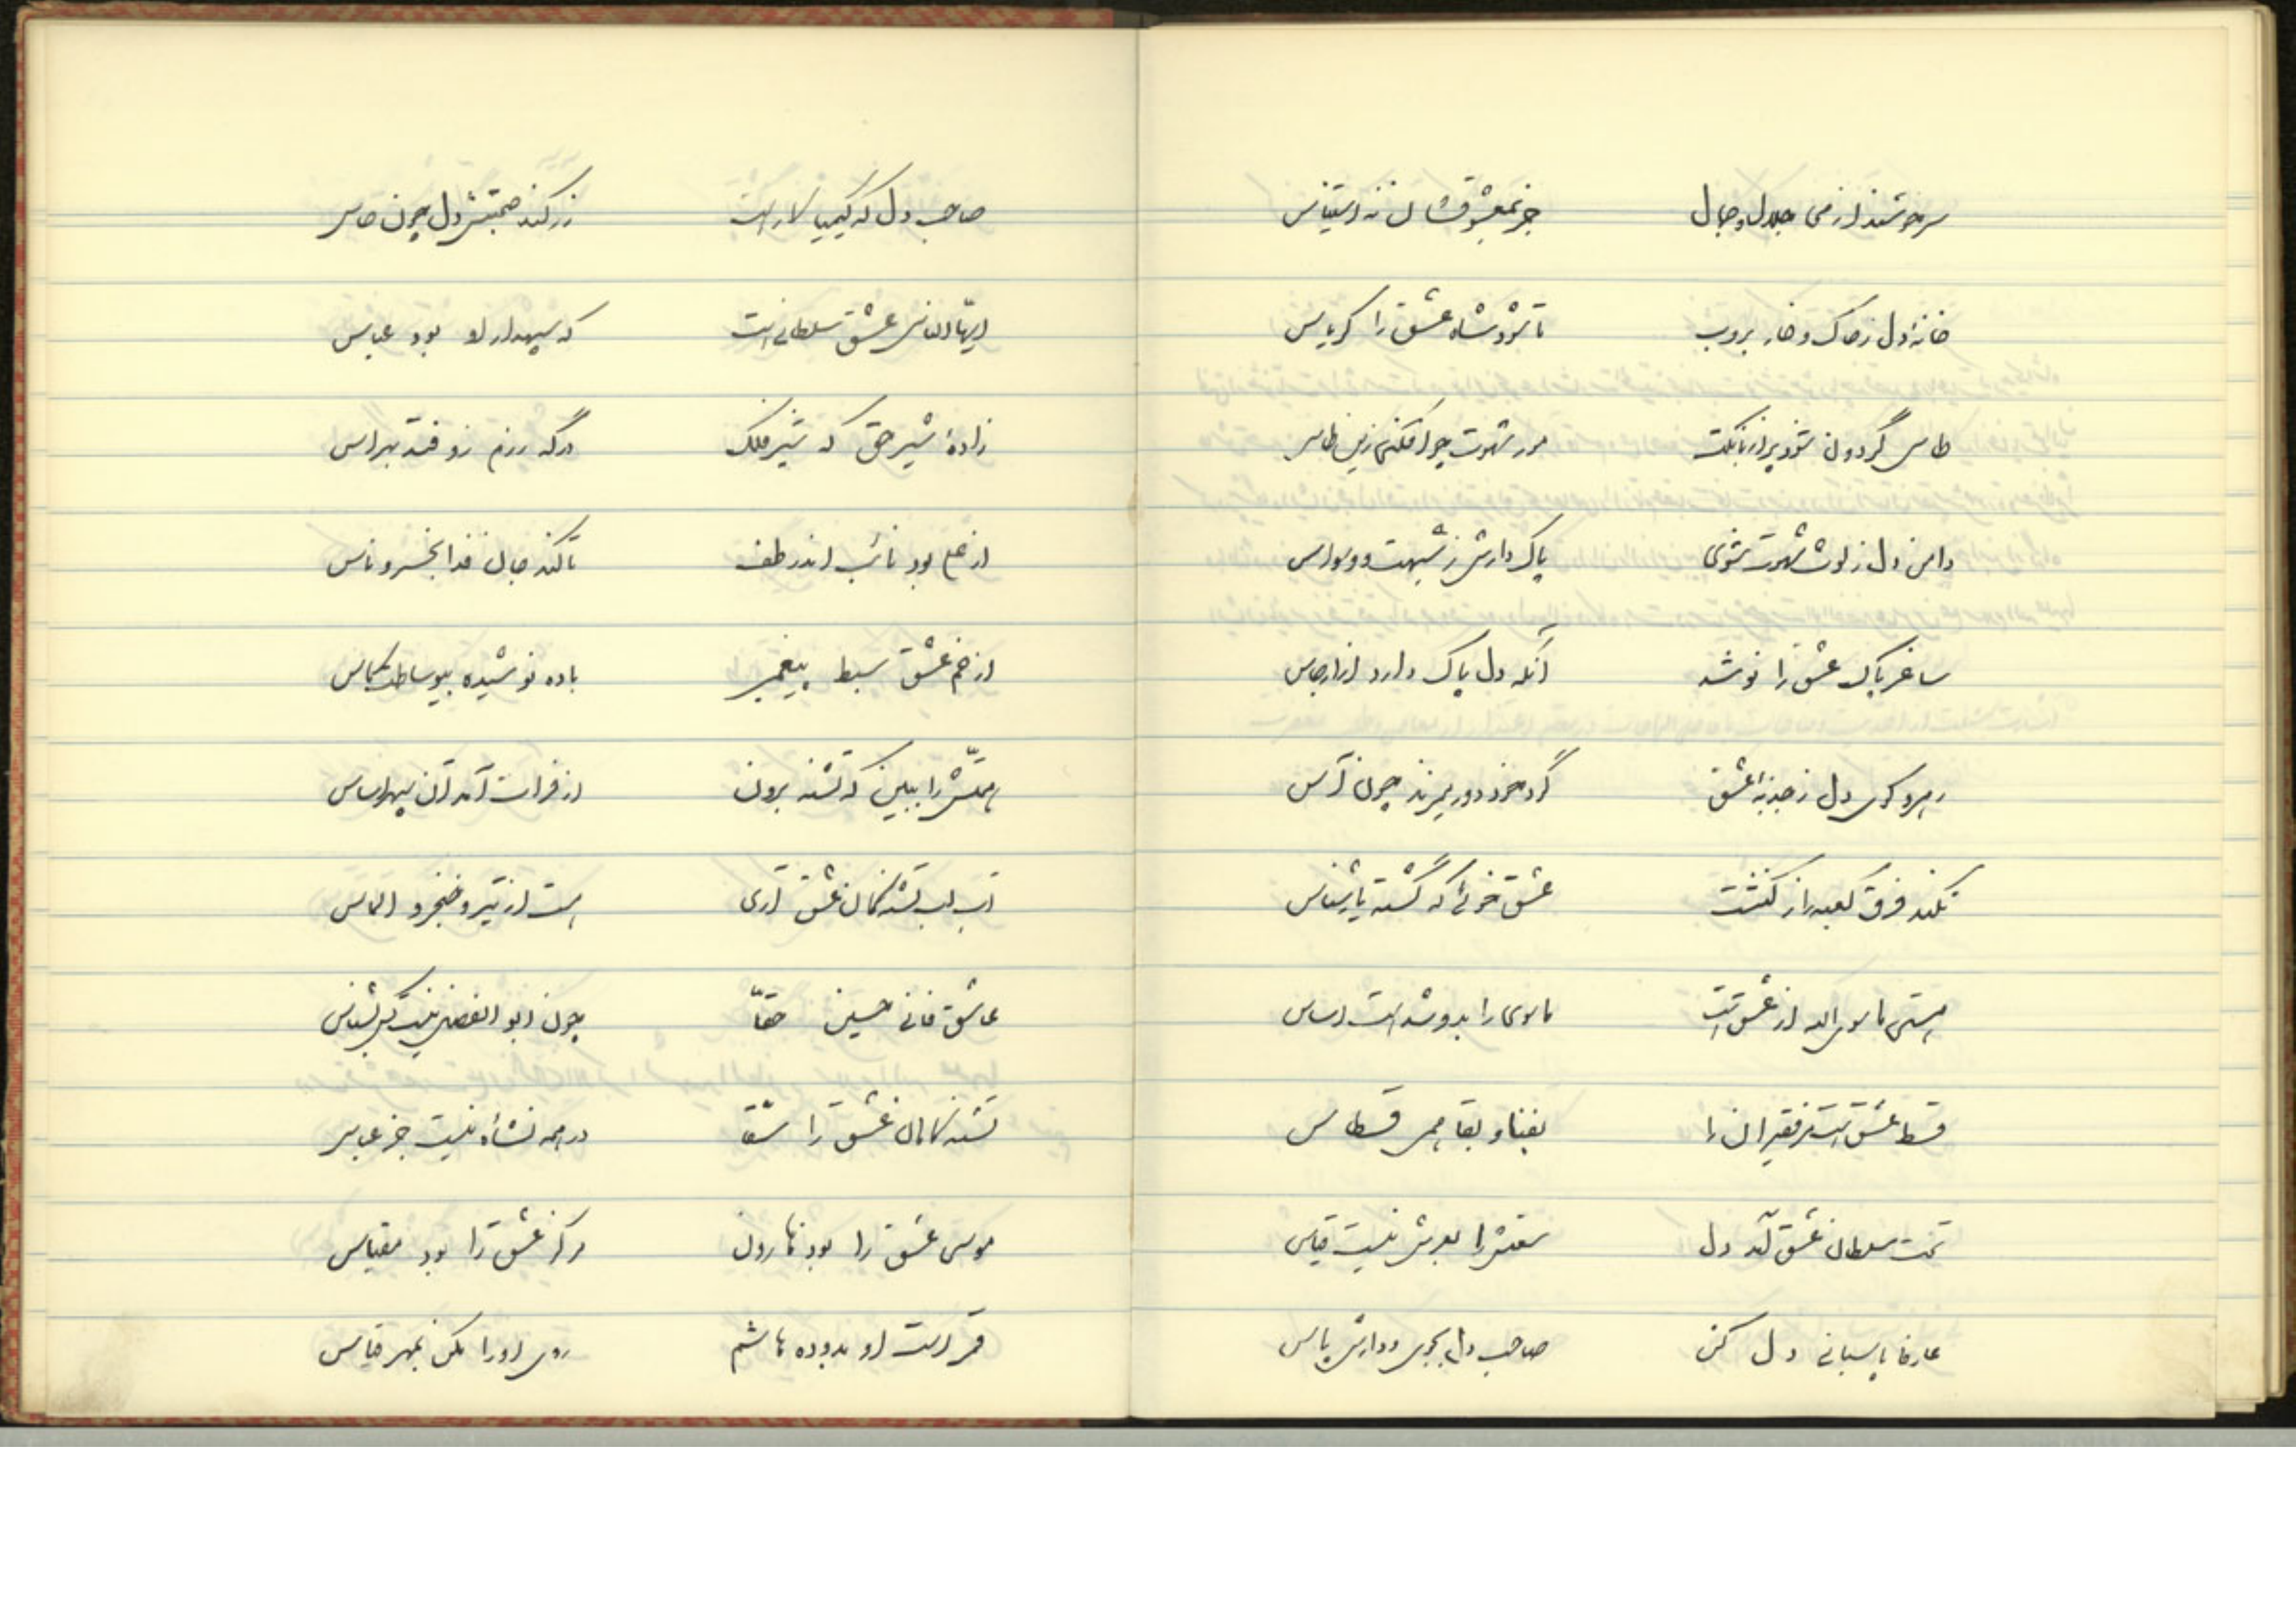 سرخوشند از می جلال و جمال جز بمعشوقشان نه استیناس
خانهٔ دل ز خاک و خار بروب تا شود شاه عشق را کریاس
طاس گردون شود پر از بانگت مور شهوت چو افکنی زین طاس
دامن دل ز لوث شهوت شوی پاک دارش ز شبهت و وسواس
ساغر پاک عشق را نوشد آنکه دل پاک دارد از ارجاس
رهرو کوی دل ز جذبهٔ عشق گرد خود دور میزند چون آس
نکند فرق کعبه را ز کنشت عشق خوئی که گشته یارشناس
هستی ماسوی الله از عشق است ماسوی را بدو شد است اساس
قسط عشق است مر فقیران را بفنا و بقا همر قسطاس
تخت سلطان عشق آمد دل سعتش را بعرش نیست قیاس
عارفا پاسبانی دل کن صاحب دل بجوی و دارش پاس
صاحب دل که کیمیا کار است زر کند صحبتش دل چون حاس
ایها الناس عشق سلطانی است که سپهدار او بود عباس
زادهٔ شیر حق که شیر فلک درگه رزم زو فتد بهراس
از علی بود نائب اندر طف تا کند جان فدا بخسرو ناس
از خم عشق سبط پیغمبر باده نوشیده بیوساطت کاس
همتش را ببین که تشنه برون از فرات آمد آن سپهر اساس
آب لب تشنگان عشق آری هست از تیر و خنجر و الماس
عاشق فانی حسین حقا چون ابو الفضل نیست کس بشناس
تشنه کامان عشق را سقا در همه نشأه نیست جز عباس
موسی عشق را بود هارون مرکز عشق را بود مقیاس
قمر است او بدوده هاشم روی او را مکن بمهر قیاس